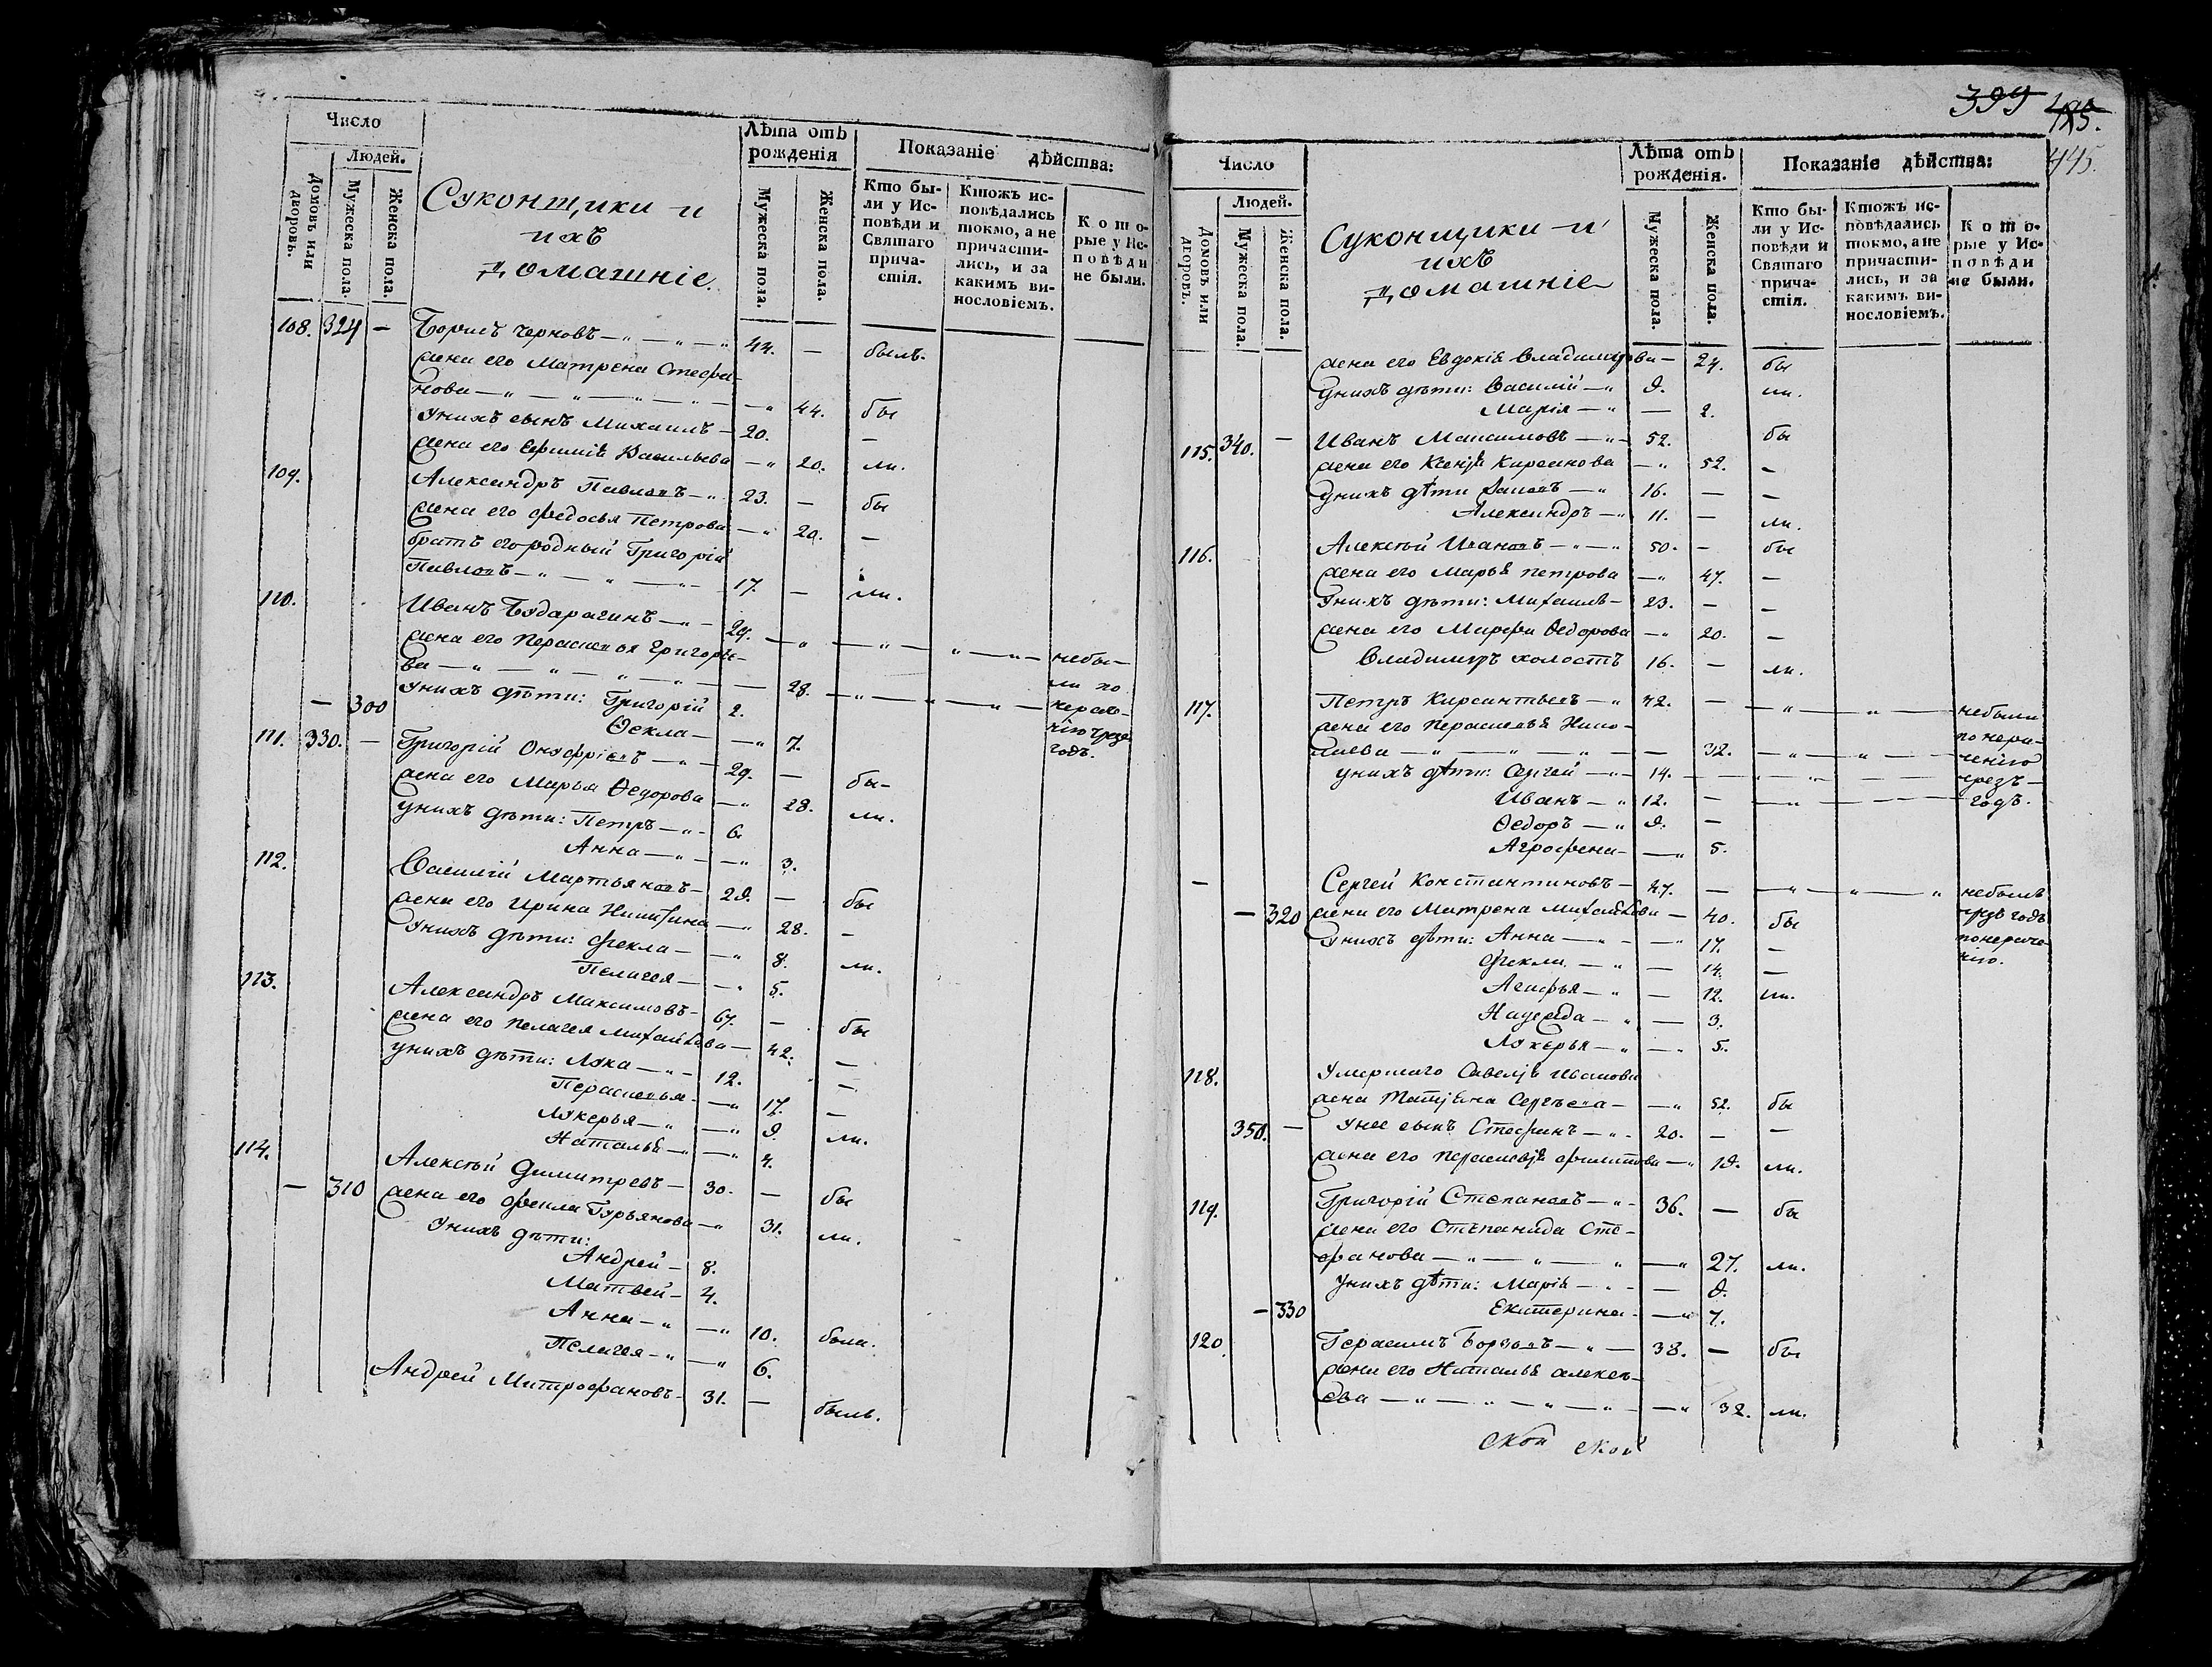 Число
Людей.
Домовъ или дворовъ.
Мужеска пола.
Женска пола.
Суконщики и
ихъ
домашніе.
Лѣта отъ
рожденія
Мужеска пола.
Женска пола.
Показаніе дѣйства:
Кто бы-
ли у Ис-
повѣди и
Святаго
прича-
стія.
Ктожъ ис-
повѣдались
токмо, а не
причасти-
лись, и за
какимъ ви-
нословіемъ.
Кото-
рые у Ис-
повѣди
не были.
108. 324 — Борисъ Черновъ — 44. — былъ.
жена его Матрена Стефа-
нова — 44. бы
у нихъ сынъ Михаилъ — 20. —
жена его Васильева — 20. ли.
109. Александръ Павловъ — 23. — бы
жена его Федосья Петрова — 20. —
братъ его родный Григорій
Павловъ — 17. — ли.
110. Иванъ Бударагинъ — 29. — небы-
жена его Парасковья Григорье-
ва — 28. — ли по
у нихъ дѣти: Григорій 2. нераче-
— 300 Ѳекла — 7. годъ.
111. 330. — Григорій Онуфріевъ — 29. — бы-
жена его Марья Ѳедорова — 28. ли.
у нихъ дѣти: Петръ — 6.
Анна — 3.
112. Василій Мартьяновъ — 29. — бы
жена его Ирина Никитина — 28. —
у нихъ дѣти: Фекла — 8. ли.
Пелагея — 5.
113. Александръ Максимовъ — 67. — бы
жена его Пелагея Михайлова — 42. —
у нихъ дѣти: Лука — 12. —
Парасковья — 17. —
Лукерья — 9. ли.
Наталья — 4.
114. Алексѣй Димитревъ — 30. — бы
— 310 жена его Фекла Гурьянова — 31. ли.
у нихъ дѣти:
Андрей — 8.
Матвей — 4.
Анна — 10. была.
Пелагея — 6.
Андрей Митрофановъ — 31. — былъ.
399
445.
Число
Людей.
Домовъ или дворовъ.
Мужеска пола.
Женска пола.
Суконщики и
ихъ
домашніе
Лѣта отъ
рожденія.
Мужеска пола.
Женска пола.
Показаніе дѣйства:
Кто бы-
ли у Ис-
повѣди и
Святаго
прича-
стія.
Ктожъ ис-
повѣдались
токмо, а не
причасти-
лись, и за
какимъ ви-
нословіемъ.
Кото-
рые у Ис-
повѣди
не были.
жена его Евдокія Владимирова — 24. бы
у нихъ дѣти: Василій — 9. ли.
Марія — 2.
115. 340. — Иванъ Максимовъ — 52. бы
жена его Ксенія Кирсанова — 52. —
у нихъ дѣти — 16. — —
Александръ — 11. — ли.
116. Алексѣй Ивановъ — 50. — бы
жена его Марья Петрова — 47. —
у нихъ дѣти: Михаилъ — 23. — —
жена его Марфа Ѳедорова — 20. —
Владимиръ холостъ 16. — ли.
117. Петръ Кирсантьевъ — 42. — небыли
жена его Парасковья Нико-
лаева — 32. — по нера-
у нихъ дѣти: Сергей — 14. — ченію
Иванъ — 12. — чрезъ
Ѳедоръ — 9. — годъ.
Агрофена — 5.
— Сергей Константиновъ — 47. — небылъ
— 320 жена его Матрена Михайлова — 40. бы чрезъ годъ
у нихъ дѣти: Анна — 17. — по нераче-
Фекла — 14. — нію.
Агафья — 12. ли.
Надежда — 3.
Лукерья — 5.
118. Умершаго Савелія Иванова
жена Татіяна Сергѣева — 52. бы
350. — у нее сынъ Стефанъ — 20. — —
жена его Парасковія Филипова — 19. ли.
119. Григорій Степановъ — 36. — бы
жена его Степанида Сте-
фанова — 27. ли.
у нихъ дѣти: Марія — 9.
— 330 Екатерина — 7.
120. Герасимъ Борзовъ — 38. — бы
жена его Наталья Алексѣ-
ева — 32. ли.
ской ской